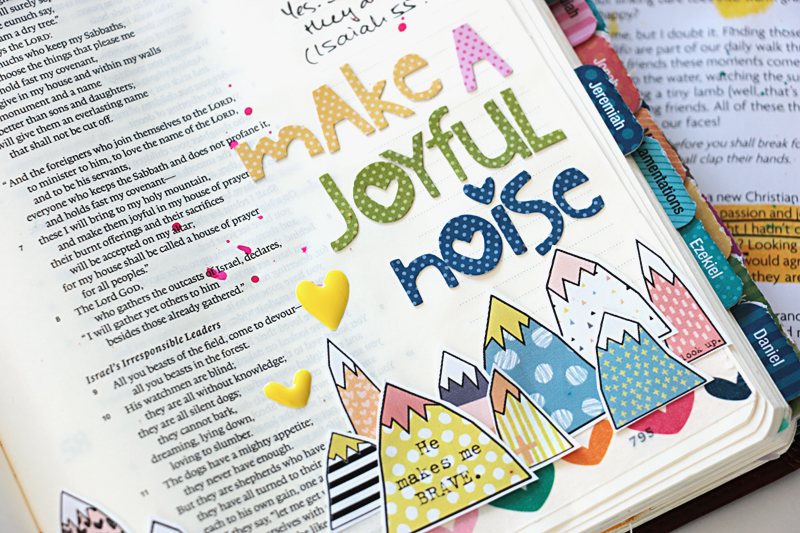 a dry tree."
says the LORD:
who keep my Sabbaths,
choose the things that please me
hold fast my covenant,
give in my house and within my walls
monument and a name
better than sons and daughters;
will give them an everlasting name
that shall not be cut off.
"And the foreigners who join themselves to the LORD,
to minister to him, to love the name of the LORD,
and to be his servants,
everyone who keeps the Sabbath and does not profane it,
and holds fast my covenant—
7 these I will bring to my holy mountain,
and make them joyful in my house of prayer
their burnt offerings and their sacrifices
will be accepted on my altar;
for my house shall be called a house of prayer
for all peoples."
8 The Lord GOD,
who gathers the outcasts of Israel, declares,
"I will gather yet others to him
besides those already gathered."
Israel's Irresponsible Leaders
9 All you beasts of the field, come to devour—
all you beasts in the forest.
10 His watchmen are blind;
they are all without knowledge;
they are all silent dogs;
they cannot bark,
dreaming, lying down,
loving to slumber.
11 The dogs have a mighty appetite;
they never have enough.
But they are shepherds who have
they have all turned to their
each to his own gain, one a
they say, "let me get
Yes.
they a
(Isaiah 55
MAKE A
JOYFUL
NOISE
He
makes me
BRAVE.
look up.
795
Jeremiah
Lamentations
Ezekiel
Daniel
me, but I doubt it. Finding those
are part of our daily walk
friends these moments come
to the water, watching the su
a tiny lamb (well, that's
ng friends. All of these th
our faces!
before you shall break fo
all clap their hands.
a new Christian
passion and j
t I hadn't
? Looking
would agr
they are